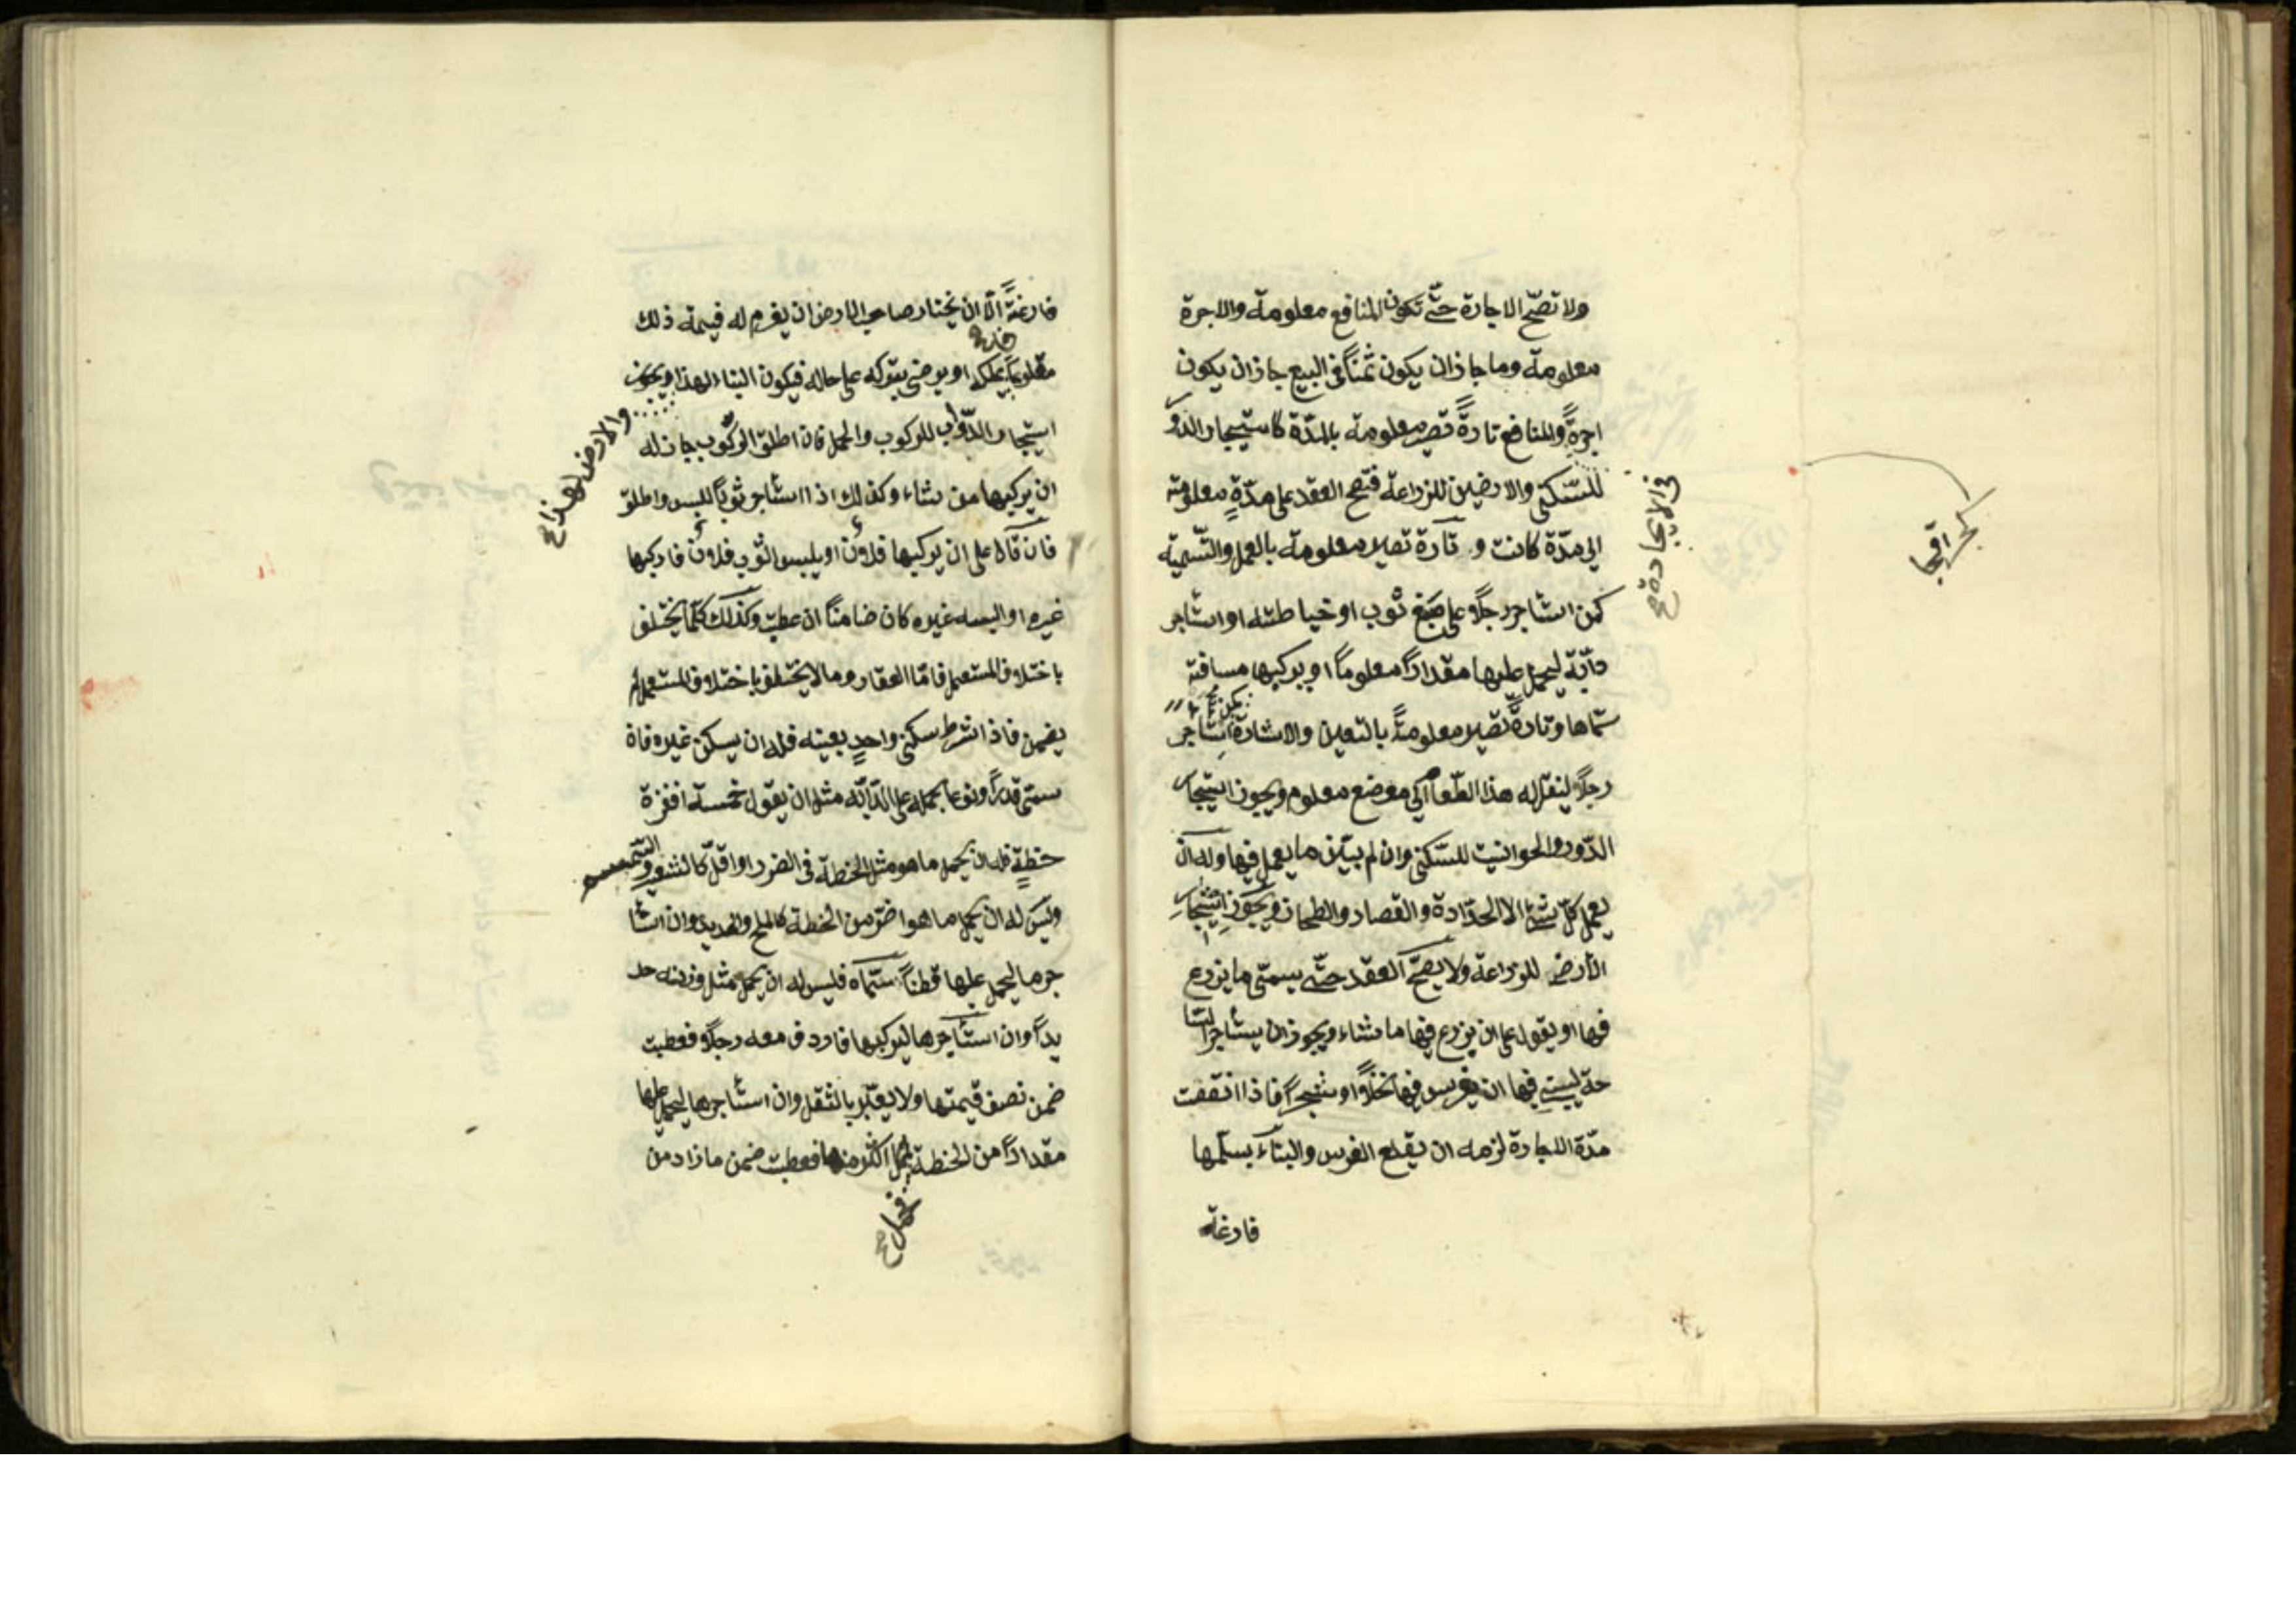 ولا تصّح الاجارة حتّى تكون المنافع معلومة والاجرة
معلومة وما جاز ان يكون ثمناً فى البيع جاز ان يكون
اجرةً والمنافع تارةً تصير معلومة بالمدّة كاستيجار الدّور
للسّكنى والارضين للزراعة فتصح العقد على مدّةٍ معلومة
اىّ مدّة كانت و تارة تصير معلومة بالعمل والتّسمية
كمن استأجر رجلاً على صبغ ثوب او خياطته او استأجر
دابّة ليحمل عليها مقداراً معلوماً او يركبها مسافة
سمّاها وتارةً تصير معلومتاً بالتعيين والاشارة كمن استأجر
رجلاً لينقل له هذا الطّعام الى موضع معلوم ويجوز استيجار
الدّور والحوانيت للسّكنى وان لم يبيّن ما يعمل فيها وله ان
يعمل كلّ شئ الا الحدّادة والقصار والطحان ويجوز استيجار
الأرض للزراعة ولا يصحّ العقد حتّى يسمّى ما يزرع
فيها او يقول على ان يزرع فيها ما شاء ويجوز ان يستأجر السّا
حة ليبنى فيها ان يغرس فيها نخلاً او شجراً فاذا انقضت
مدّة الاجارة لزمه ان يقلع الغرس والبناء يسلّمها
فارغة
فى الاجارة صح
فارغةً الّا ان يختار صاحب الارض ان يغرم له قيمة ذلك
مقلوعاً يملكه او يرضى بتركه على حاله فيكون البناء لهذا ويجوز
والارض لهذا صح
استيجار الدّوابّ للركوب والحمل فان اطلق الركوب جاز له
ان يركبها من شاء وكذلك اذا استأجر ثوباً للبس واطلق
فان قال على ان يركبها فلان او يلبس الثّوب فلان فاركبها
غيره او البسه غيره كان ضامناً ان عطبت وكذلك كلّما يختلف
باختلاف المستعمل فامّا العقار وما لا يختلف باختلاف المستعمل لم
يضمن فاذا شرط سكنى واحدٍ بعينه فله ان يسكن غيره فان
سمّى قدراً ونوعا يحمله على الدّابّة مثل ان يقول خمسة اقفزة
حنطةٍ فله ان يحمل ما هو مثل الحنطة فى الضرر او اقلّ كالشعير والسّمسم
وليس له ان يحمل ما هو اضرّ من الحنطة كالملح والحديد وان استأ
جرها ليحمل عليها قطناً سمّاه فليس له ان يحمل مثل وزنه حد
يداً وان استأجرها ليركبها فاردف معه رجلاً فعطبت
ضمن نصف قيمتها ولا يعتبر بالثقل وان استأجرها ليحمل عليها
مقداراً من الحنطة فحمل اكثر منها فعطبت ضمن ما زاد من
فحمل صح